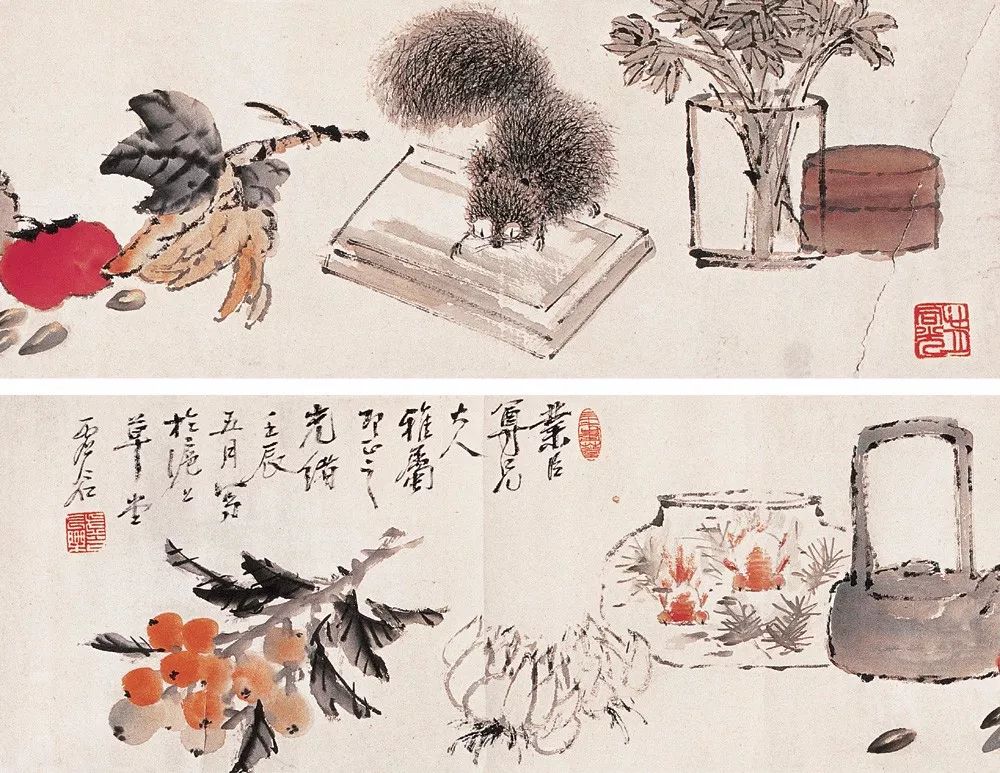 業臣
尊兄
大人
雅屬
即正之
光緒
壬辰
五月寫
於滬上
草堂
虛谷